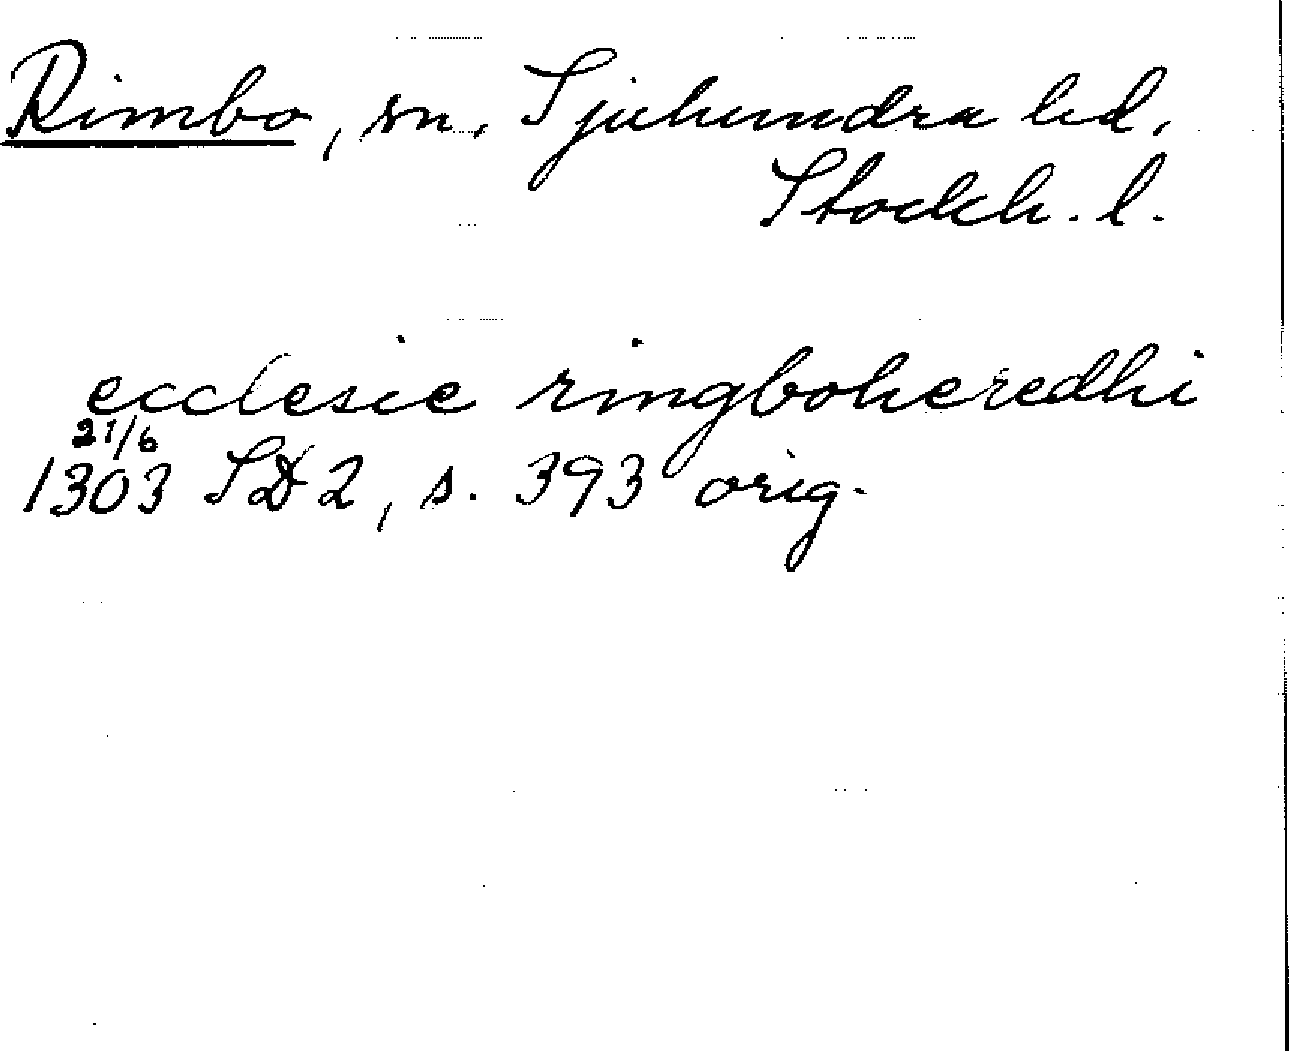 Rimbo, sn, Sjuhundra hd,
Stockh. l.
ecclesie ringboheredhi
21/6
1303 SD 2, s. 393 orig.